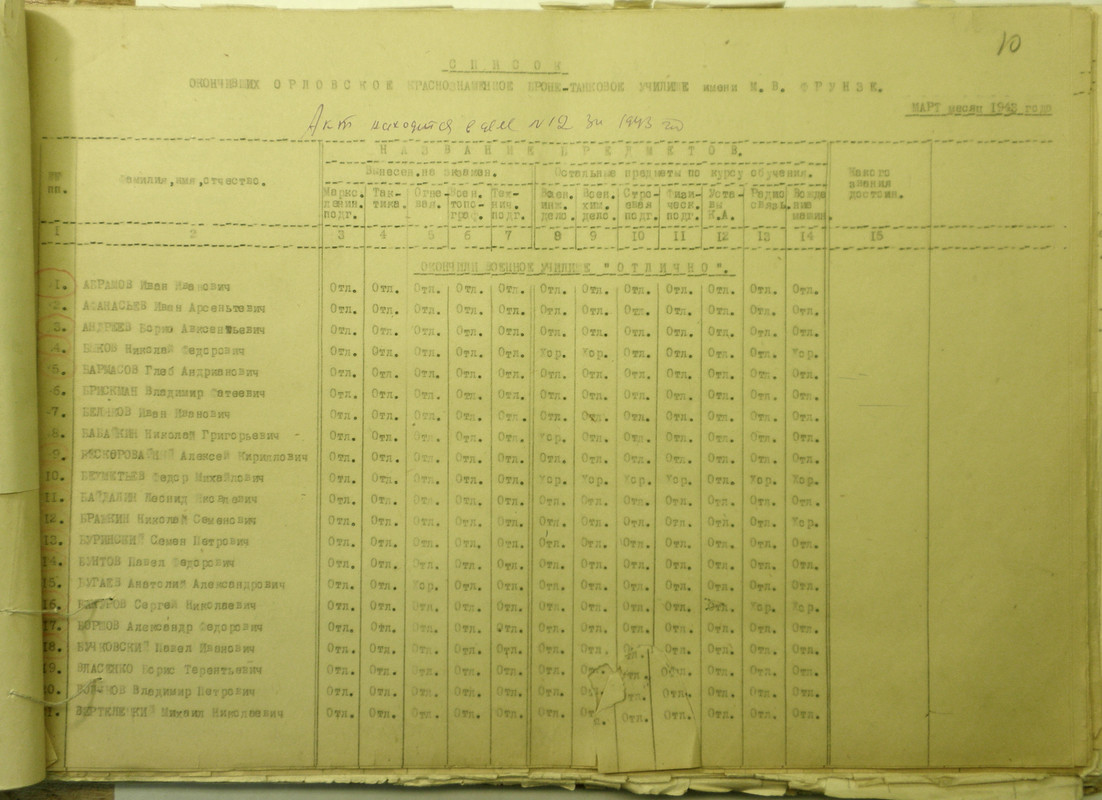 10
СПИСОК
ОКОНЧИВШИХ ОРЛОВСКОЕ КРАСНОЗНАМЕННОЕ БРОНЕ-ТАНКОВОЕ УЧИЛИЩЕ имени М. В. ФРУНЗЕ.
МАРТ месяц 1943 года
Акт находится в деле №12 за 1943 год
НАЗВАНИЕ ПРЕДМЕТОВ.
Вынесен.на экзамен. Остальные предметы по курсу обучения.
№№ пп. Фамилия,имя,отчество. Маркс.ленин.подг. Так-тика. Огне-вая. Воен.топо-граф. Тех-нич.подг. Воен.инж.дело. Воен.хим.дело. Стро-евая подг. Физи-ческ.подг. Уста-вы К.А. Радио связь. Вожде ние машин. Какого звания достоин.
1 2 3 4 5 6 7 8 9 10 11 12 13 14 15
ОКОНЧИЛИ ВОЕННОЕ УЧИЛИЩЕ "ОТЛИЧНО".
1. АБРАМОВ Иван Иванович Отл. Отл. Отл. Отл. Отл. Отл. Отл. Отл. Отл. Отл. Отл. Отл.
2. АФАНАСЬЕВ Иван Арсеньтевич Отл. Отл. Отл. Отл. Отл. Отл. Отл. Отл. Отл. Отл. Отл. Отл.
3. АНДРЕЕВ Борис Авксентьевич Отл. Отл. Отл. Отл. Отл. Отл. Отл. Отл. Отл. Отл. Отл. Отл.
4. Николай Федорович Отл. Отл. Отл. Отл. Отл. Хор. Хор. Отл. Отл. Отл. Отл. Хор.
5. БАРМАСОВ Глеб Андрианович Отл. Отл. Отл. Отл. Отл. Отл. Отл. Отл. Отл. Отл. Отл. Отл.
6. БРИСКМАН Владимир Фатеевич Отл. Отл. Отл. Отл. Отл. Отл. Отл. Отл. Отл. Отл. Отл. Отл.
7. БЕЛЯКОВ Иван Иванович Отл. Отл. Отл. Отл. Отл. Отл. Отл. Отл. Отл. Отл. Отл. Отл.
8. БАБАЙКИН Николай Григорьевич Отл. Отл. Отл. Отл. Отл. Хор. Отл. Отл. Отл. Отл. Отл. Отл.
9. БЕСКОРОВАЙНЫЙ Алексей Кириллович Отл. Отл. Отл. Отл. Отл. Отл. Отл. Отл. Отл. Отл. Отл. Отл.
10. Федор Михайлович Отл. Отл. Отл. Отл. Отл. Хор. Хор. Хор. Хор. Отл. Хор. Хор.
11. БАЙДАЛИН Леонид Яковлевич Отл. Отл. Отл. Отл. Отл. Отл. Отл. Отл. Отл. Отл. Отл. Отл.
12. Николай Семенович Отл. Отл. Отл. Отл. Отл. Отл. Отл. Отл. Отл. Отл. Отл. Хор.
13. БУРИНСКИЙ Семен Петрович Отл. Отл. Отл. Отл. Отл. Отл. Отл. Отл. Отл. Отл. Отл. Отл.
14. БУНТОВ Павел Федорович Отл. Отл. Отл. Отл. Отл. Отл. Отл. Отл. Отл. Отл. Отл. Отл.
15. БУГАЕВ Анатолий Александрович Отл. Отл. Хор. Отл. Отл. Отл. Отл. Отл. Отл. Отл. Отл. Отл.
16. Сергей Николаевич Отл. Отл. Отл. Отл. Отл. Отл. Отл. Отл. Отл. Отл. Хор. Хор.
17. Александр Федорович Отл. Отл. Отл. Отл. Отл. Отл. Отл. Отл. Отл. Отл. Отл. Отл.
18. БУЧКОВСКИЙ Павел Иванович Отл. Отл. Отл. Отл. Отл. Отл. Отл. Отл. Отл. Отл. Отл. Отл.
19. ВЛАСЕНКО Борис Терентьевич Отл. Отл. Отл. Отл. Отл. Отл. Отл. Отл. Отл. Отл. Отл. Отл.
Владимир Петрович Отл. Отл. Отл. Отл. Отл. Отл. Отл. Отл. Отл. Отл. Отл.
Михаил Николаевич Отл. Отл. Отл. Отл. Отл. Отл. Отл. Отл. Отл. Отл. Отл.